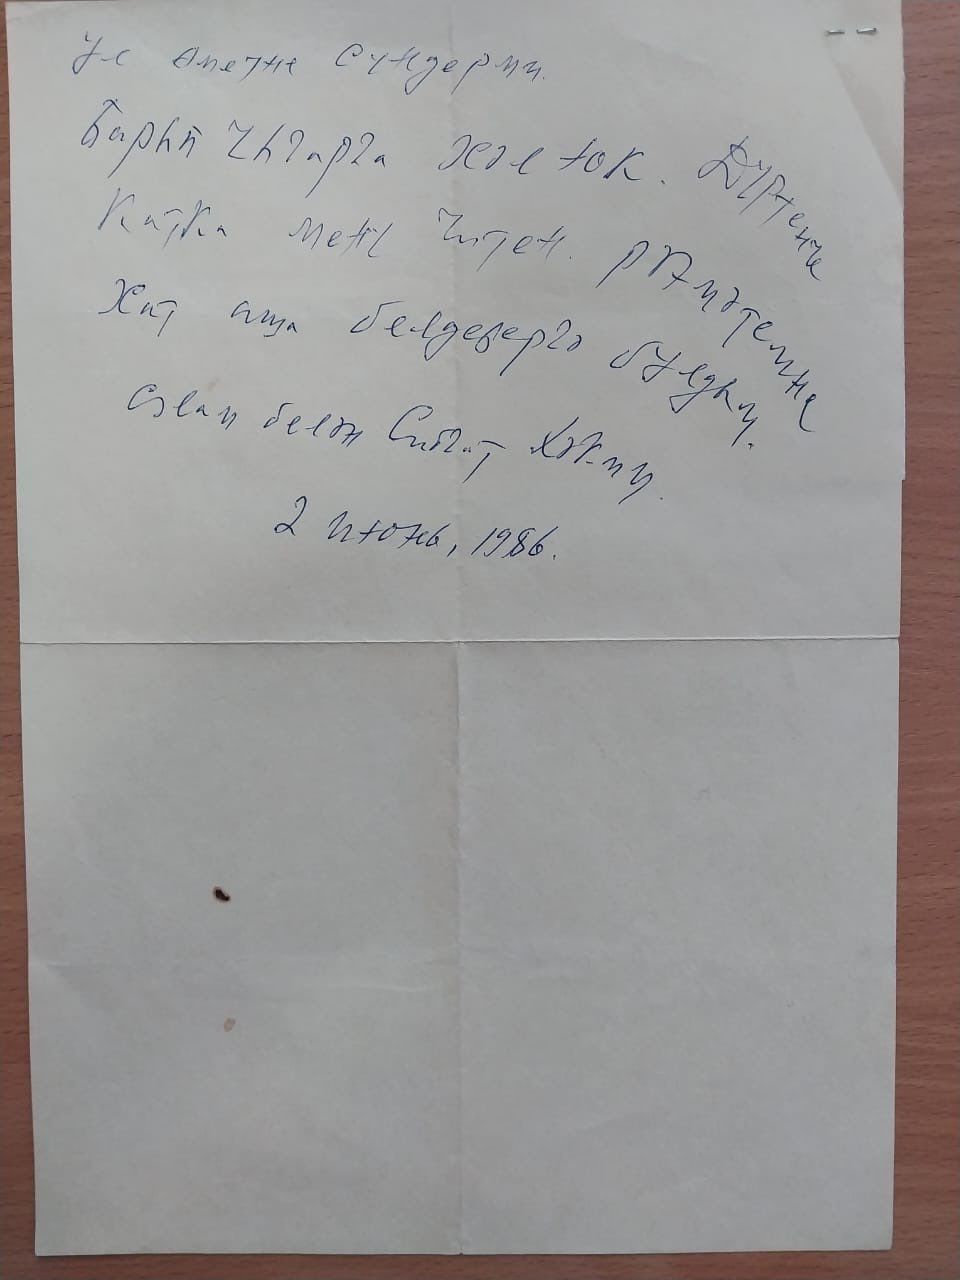 Ул өметне сүндерми.
Барып чыгарга хәл юк. Дүртенче
катка менү читен. рәхмәтемне
Хат аша белдерергә булдым.
Сәлам белән Сибгат Хәким.
2 июнь, 1986.